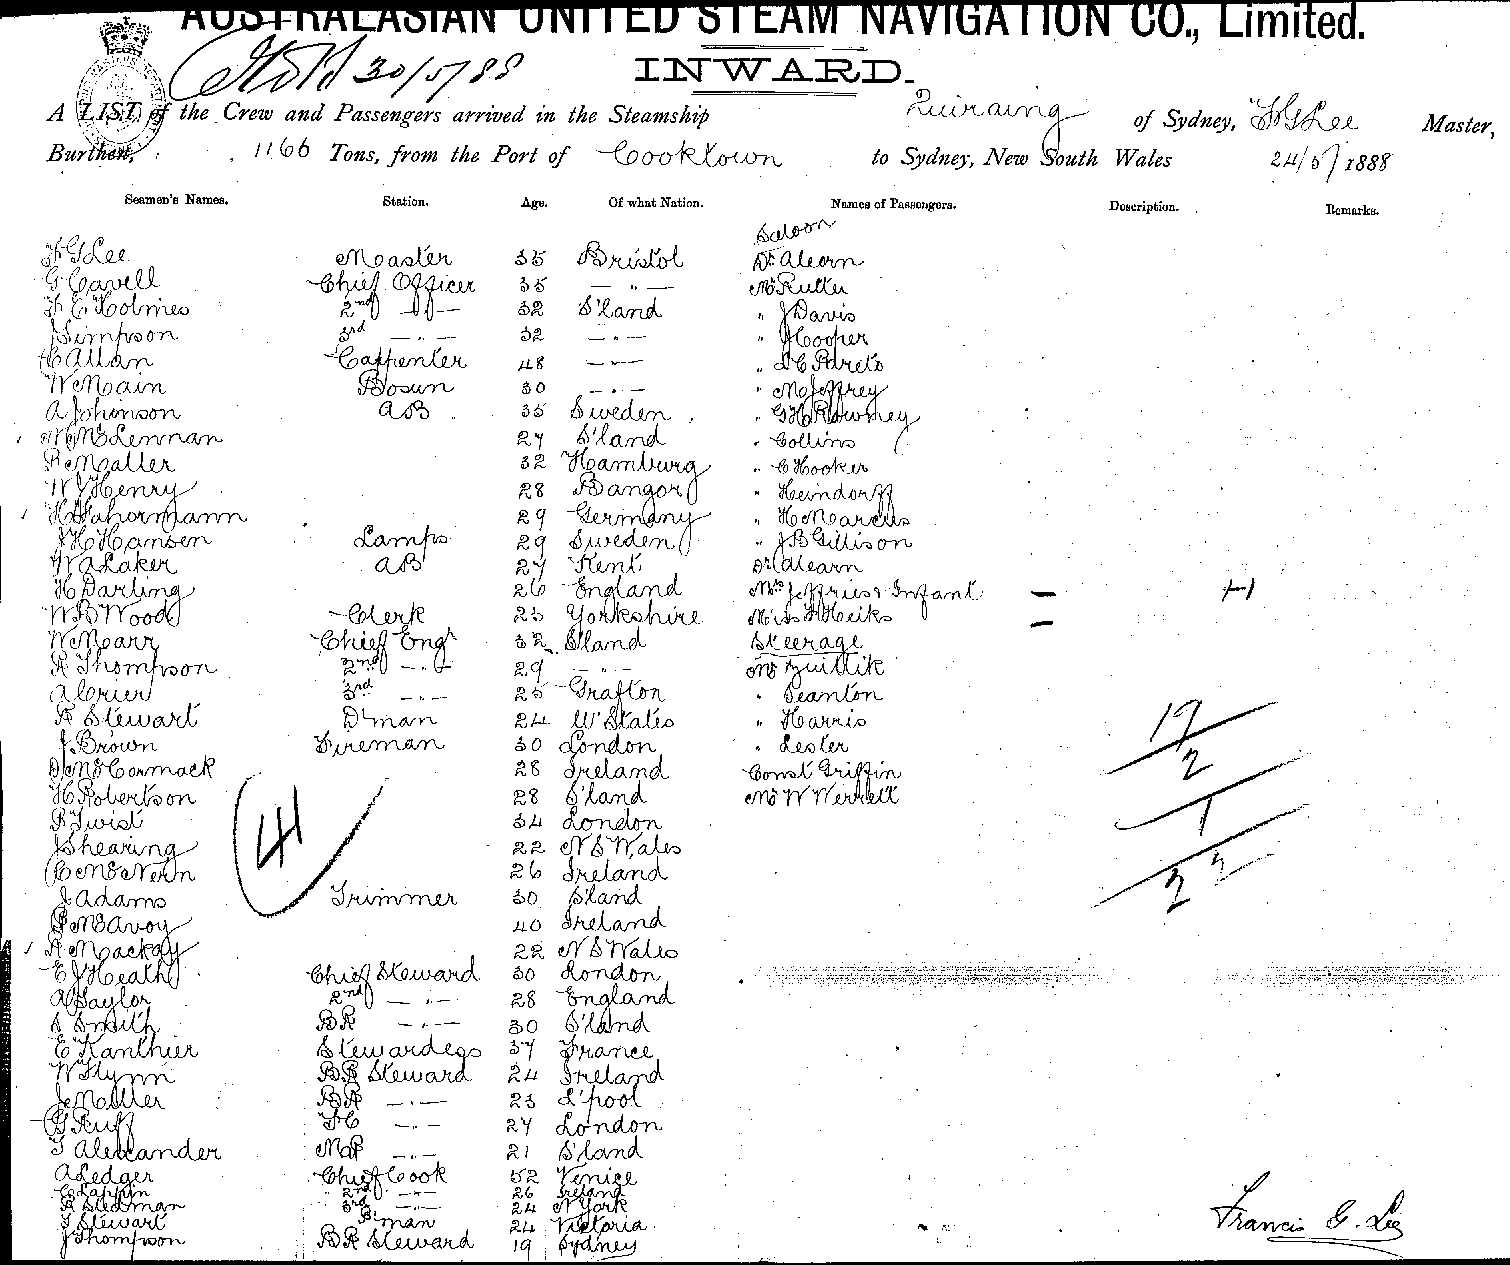 AUSTRALASIAN UNITED STEAM NAVIGATION CO., Limited.
30/5/88
INWARD.
A LIST of the Crew and Passengers arrived in the Steamship Quiraing of Sydney, F G Lee Master,
Burthen, 1166 Tons, from the Port of Cooktown to Sydney, New South Wales 24/5/1888
Seamen's Names. Station. Age. Of what Nation. Names of Passengers. Description. Remarks.
Saloon
F G Lee Master 35 Bristol Dr Alearn
G Cavell Chief Officer 35 — " — Mr Rutter
F E Holmes 2nd — " — 32 S'land " J Davis
J Simpson 3rd — " — 32 — " — " J Cooper
C Allan Carpenter 48 — " — " L C Pareto
W Main Bosun 30 — " — " M Jeffrey
A Johonson AB 35 Sweden " G H Rowney
M McLennan 27 S'land " Collins
R Matter 32 Hamburg " C Hooker
W J Henry 28 Bangor " Heindorff
29 Germany " H Marcus
J H Hansen Lamps 29 Sweden " J B Gillison
W A Laker AB 27 Kent Dr Alearn
H Darling 26 England Mrs Jeffries & Infant — 1
W B Wood Clerk 23 Yorkshire Miss F Heiks —
W Marr Chief Engr 32 S'land Steerage
R Thompson 2nd — " — 29 — " — Mr
A Crier 3rd — " — 25 Grafton " Peanton
A Stewart D'man 24 U States " Harris
J Brown Fireman 30 London " Lester
D McCormack 28 Ireland Const Griffin
H Robertson 28 S'land Mr W Werrett
R Twist 34 London
J Shearing 22 N S Wales
C McNern 26 Ireland
J Adams Trimmer 30 S'land
P McAvoy 40 Ireland
A Mackay 22 N S Wales
E J Heath Chief Steward 30 London
A Taylor 2nd — " — 28 England
S Smith BR — " — 30 S'land
E Kanthier Stewardess 37 France
W Flynn BR Steward 24 Ireland
J Miller BR — " — 23 L'pool
G Ruff FC — " — 27 London
T Alexander MR — " — 21 S'land
A Ledger Chief Cook 52 Venice
C Lappin 2nd — " — 26 Ireland
R Stedman 3rd — " — 24 N York
T Stewart B'man 24 Victoria
J Thompson BR Steward 19 Sydney
41
19
2
1
22
Francis G. Lee